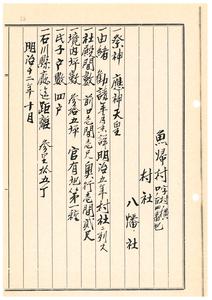 魚帰村
村社
八幡社
祭神 應神天皇
由緒 勧請年月不詳明治五年村社ニ列ス
一社殿間数 前口壱間壱尺奥行壱間貳尺
一境内坪数 参拾五坪 官有地第一種
一氏子戸数 四戸
一石川県廳迄距離 参里拾五丁
明治十二年十月